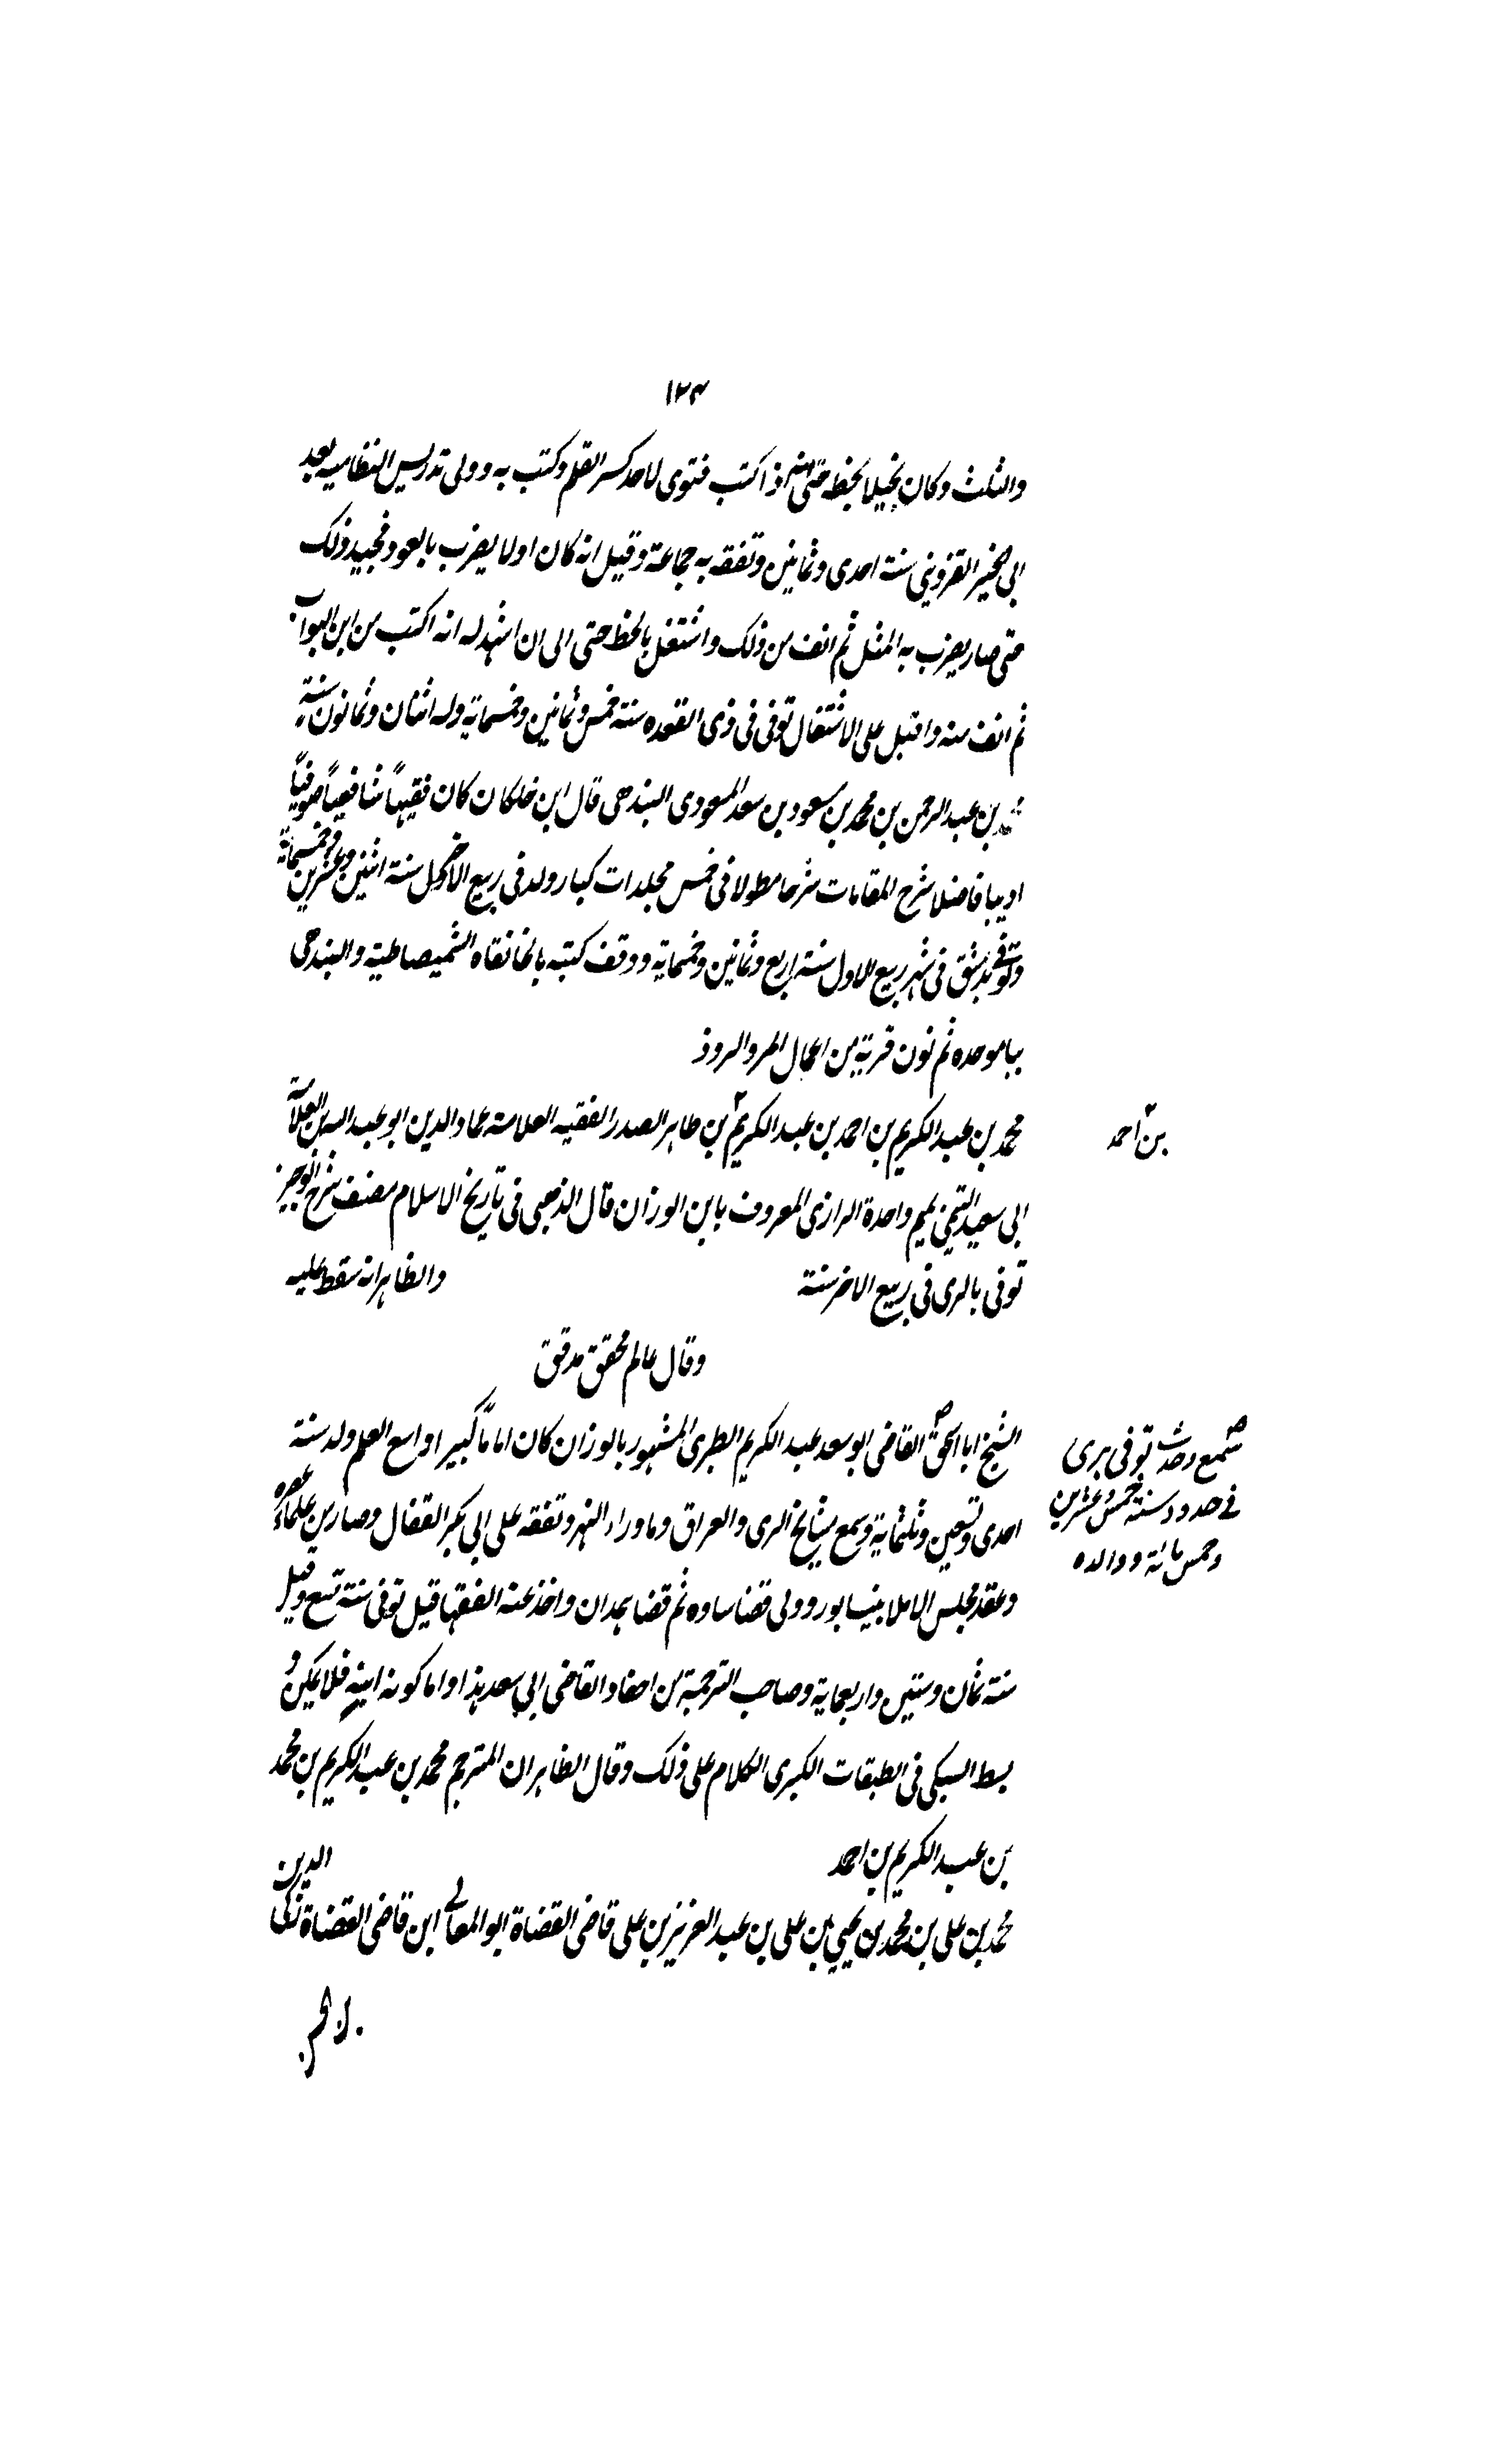 ١٢٤
والثلث وكان بخيلا بخطه حتى انه اذا كتب فتوى لاحد كسر القلم وكتب به وولى تدريس النظاميه بعد
ابى الخير القزويني سنة احدى وثمانين وتفقه به جماعة وقيل انه كان اولا يضرب بالعود فيجيد ذلك
حتى صار يضرب به المثل ثم انف من ذلك واشتغل بالخط حتى الى ان اشهد له انه اكتب من ابن البواب
ثم انف منه واقبل على الاشتغال توفى فى ذى القعده سنة خمس وثمانين وخمسماية وله اثنان وثمانون سنة
محمد بن عبد الرحمن بن محمد بن مسعود بن سعد المسعودى البندهى قال ابن خلكان كان فقيهاً شافعياً صوفياً
اديبا فاضلا شرح المقامات شرحا مطولا فى خمس مجلدات كبار ولد فى ربيع الاول سنة اثنين وعشرين وخمسماية
وتوفى بدمشق فى شهر ربيع الاول سنة اربع وثمانين وخمسماية ووقف كتبه بالخانقاه الشميصاطية والبندهى
بباموحده ثم نون قرية من اعمال المرو الروذ
محمد بن عبد الكريم بن احمد بن عبد الكريم بن طاهر الصدر الفقيه العلامة عماد الدين ابو عبد الله بن العلامة
بن احمد
ابى سعيد التيمى بميم واحدة الرازى المعروف بابن الوزان قال الذهبى فى تاريخ الاسلام مصنف شرح الوجيز
توفى بالرى فى ربيع الاخر سنة والظاهر انه سقط عليه
وقال عالم محقق مدقق
الشيخ ابا اسحق القاضى ابو سعد عبد الكريم الطبرى المشهور بالوزان كان اماماً كبيرا واسع العلم ولد سنة
سمع وحدث توفى برى
فى حدود سنة خمس وعشرين
وخمس مائة ووالده
احدى وتسعين وثلثماية وسمع بمشايخ الرى والعراق وما وراء النهر وتفقه على ابى بكر القفال وصار من علماء عصره
وعقد مجلس الاملا بنيسابور وولى قضا ساوه ثم قضا همدان واخذ عنه الفقها قيل توفى سنة تسع وقيل
سنة ثمان وستين واربعماية وصاحب الترجمة من احفاد القاضى ابى سعد هذا واما كونه ابنه فلا يمكن و
بسط السبكى فى الطبقات الكبرى الكلام على ذلك وقال الظاهر ان المترجم محمد بن عبد الكريم بن محمد
بن عبد الكريم بن احمد
محمد بن على بن محمد بن يحيى بن على بن عبد العزيز بن على قاضى القضاة ابو المعالى ابن قاضى القضاة زكى الدين